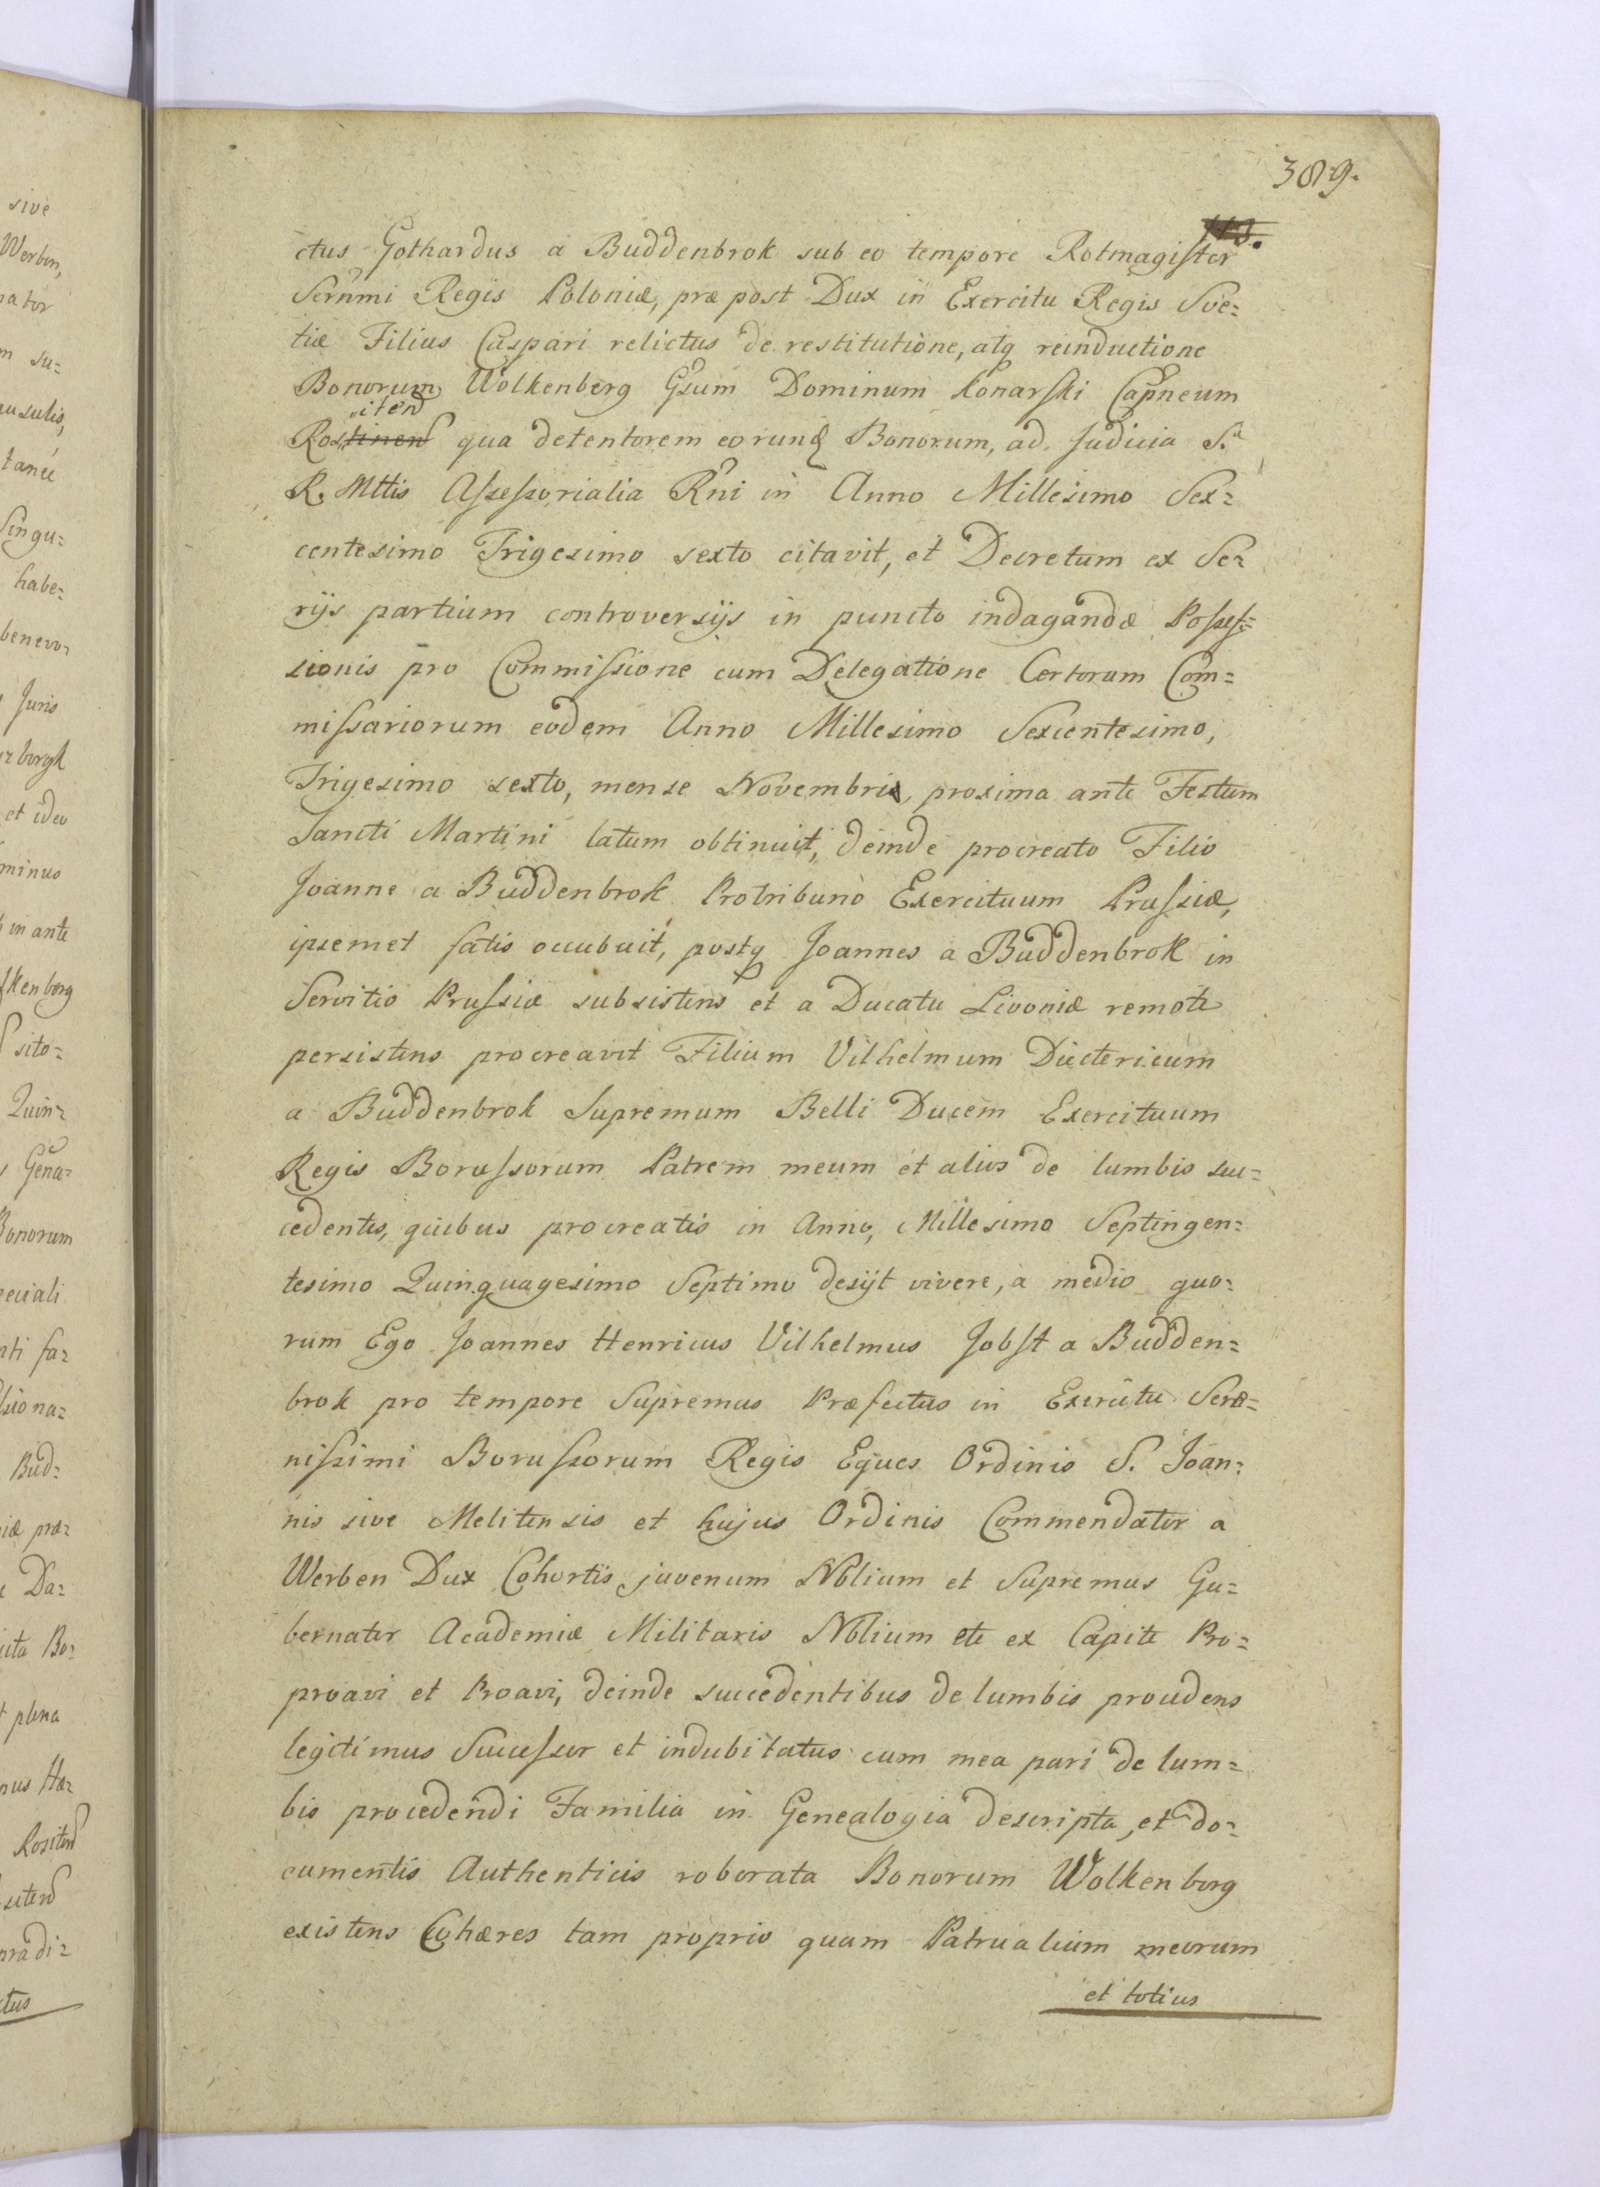 389.
ctus Gothardus a Buddenbrok sub eo tempore Rotmagister
Sernmi Regis Poloniæ, præpost Dux in Exercitu Regis Sve=
tiæ Filius Caspari relictus de restitutione, atq reinductione
Bonorum Wolkenberg Gsum Dominum Konarski Capneum
iten
Ros qua detentorem eorund Bonorum, ad Judicia S.
R. Mttis Assessorialia Rni in Anno Millesimo Sex=
centesimo Trigesimo sexto citavit, et Decretum ex Se=
rijs partium controversijs in puncto indagandæ Posses=
sionis pro Commissione cum Delegatione Certorum Com=
missariorum eodem Anno Millesimo Sexcentesimo,
Trigesimo sexto, mense Novembris, proxima ante Festum
Sancti Martini latum obtinuit, deinde procreato Filio
Joanne a Buddenbrok Protribuno Exercituum Prussiæ,
ipsemet fatis occubuit, postq Joannes a Buddenbrok in
Servitio Prussiæ subsistens et a Ducatu Livoniæ remote
persistens procreavit Filium Vilhelmum Dictericum
a Buddenbrok Supremum Belli Ducem Exercituum
Regis Borussorum Patrem meum et alios de lumbis suc=
cedentes, quibus procreatis in Anno, Millesimo Septingen=
tesimo Quinquagesimo Septimo desijt vivere, a medio quo=
rum Ego Joannes Henricus Vilhelmus Jobst a Budden=
brok pro tempore Supremus Præfectus in Exercitu Sere=
nissimi Borussorum Regis Eques Ordinis S. Joan=
nis sive Melitensis et hujus Ordinis Commendator a
Werben Dux Cohortis juvenum Nblium et Supremus Gu=
bernator Academiæ Militaris Nblium etc ex Capite Pro=
proavi et Proavi, deinde succedentibus de lumbis procedens
legitimus Successor et indubitatus cum mea pari de lum=
bis procedendi Familia in Genealogia descripta, et do=
cumentis Authenticis roborata Bonorum Wolkenberg
existens Cohæres tam proprio quam Patrualium meorum
et totius